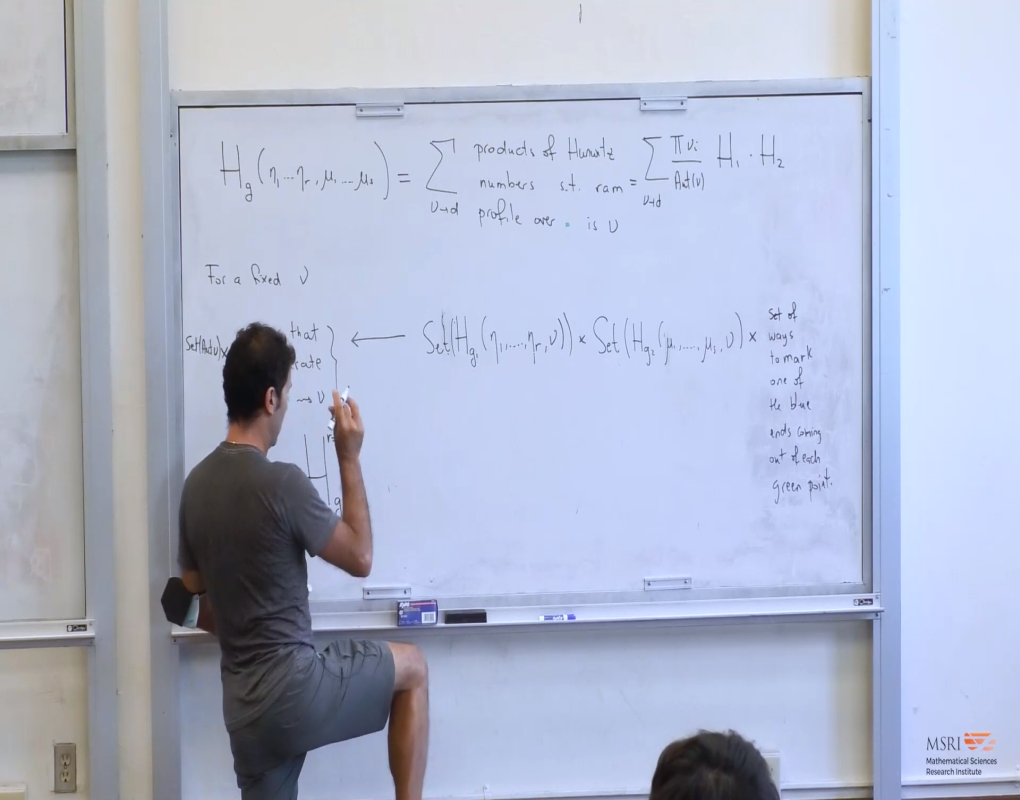 H_g (η_1 ... η_r, μ_1 ... μ_s) = Σ_{ν⊢d} products of Hurwitz numbers s.t. ram profile over . is ν = Σ_{ν⊢d} Π ν_i / Aut(ν) H_1 · H_2
For a fixed ν
that ← Set(H_{g_1}(η_1, ..., η_r, ν)) × Set(H_{g_2}(μ_1, ..., μ_s, ν)) ×
set of
ways
to mark
one of
the blue
ends coming
out of each
green point.
ν
H
g
MSRI
Mathematical Sciences
Research Institute